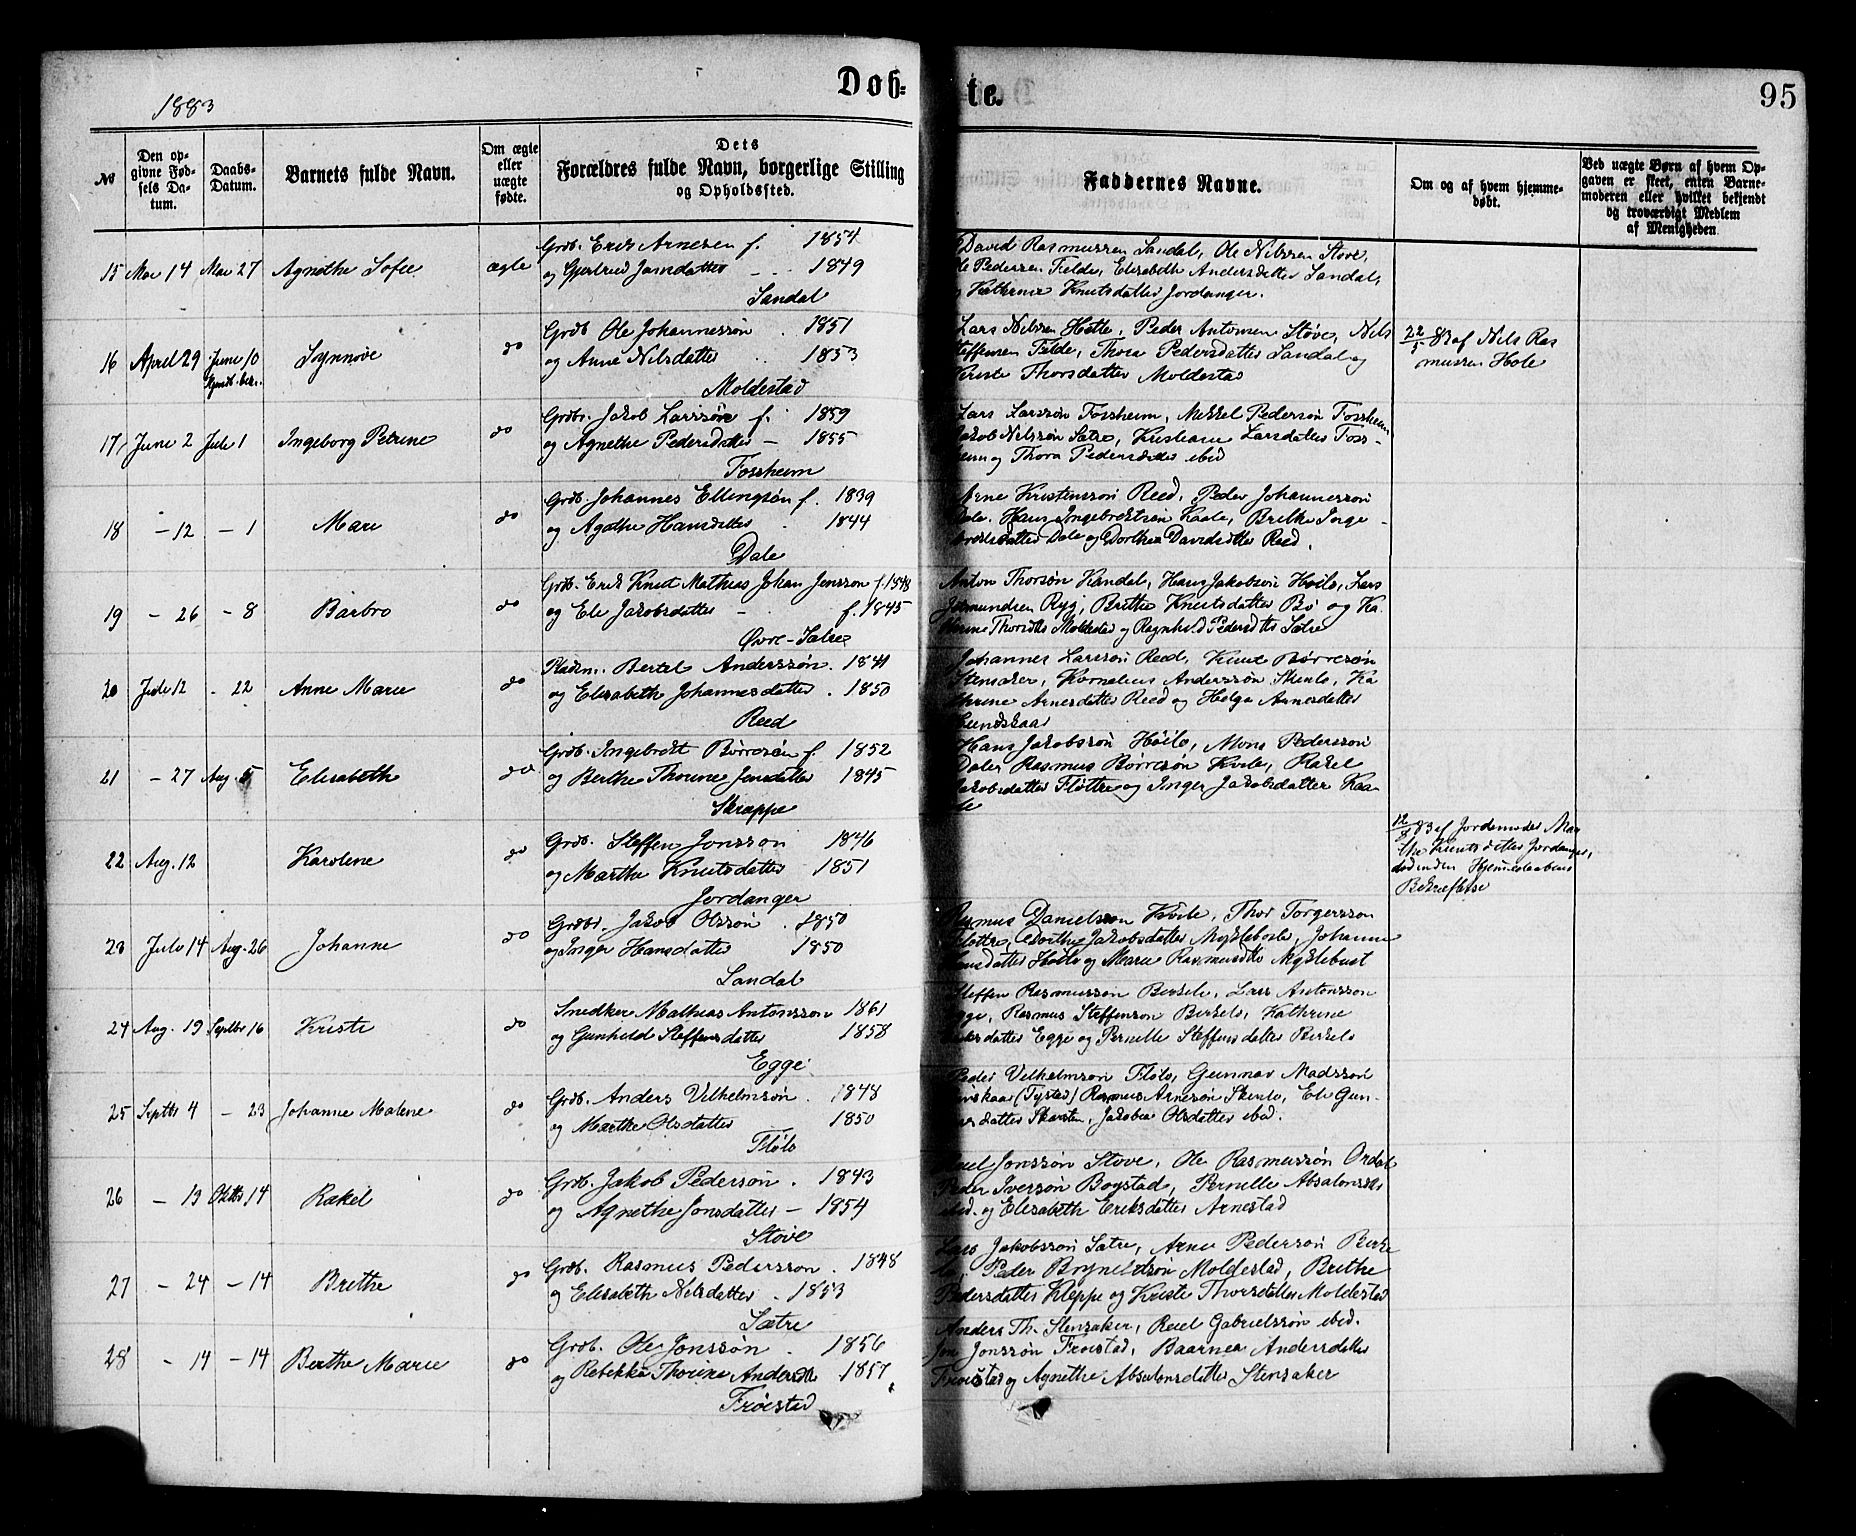 1883
Døb-
te.
95
No
Den op-
givne Fød-
sels Da-
tum.
Daabs-
Datum.
Barnets fulde Navn.
Om ægte
eller
uægte
fødte.
Dets
Forældres fulde Navn, borgerlige Stilling
og Opholdssted.
Faddernes Navne.
Om og af hvem hjemme-
døbt.
Ved uægte Børn af hvem Op-
gaven er skeet, enten Barne-
moderen eller hvilket bekjendt
og troværdigt Medlem
af Menigheden.
15 Mai 14 Mai 27 Agnethe Sofie ægte
Grdb. Erik Arnesen f. 1854
og Gjertrud Jonsdatter 1849
Sandal
David Rasmussen Sandal, Ole Nilssen Støve,
Pedersen Felde, Elisabeth Andersdatter Sandal,
Kathrine Knutsdatter Jordanger.
16 April 29 Juni 10 Synnøve do
Grdb Ole Johannessøn 1851
og Anne Nilsdatter 1853
Moldestad
Lars Nilssen Hetle, Peder Antonsen Støve, Nils
Steffensen Felde, Thora Pedersdatter Sandal og
Kristi Thorsdatter Moldestad
22/5 83 af Nils Ras
mussen Hole
17 Juni 2 Juli 1 Ingeborg Petrine do
Grdb. Jakob Larssøn f. 1859
og Agnethe Pedersdatter – 1855
Fossheim
Lars Larssøn Fossheim, Mikkel Pedersøn Fossheim
Jakob Nilssøn Sætre, Kristiane Larsdatter Foss-
heim og Thora Pedersdatter ibid
18 – 12 – 1 Mari do
Grdb. Johannes Ellingsøn f. 1839
og Agathe Hansdatter 1844
Dale
Arne Kristenssøn Reed, Peder Johannessøn
Dale, Hans Ingebrektsøn Kaale, Brithe Inge-
brektsdatter Dale og Dorthea Davidsdatter Reed.
19 – 26 – 8 Barbro do
Grdb. Erik Knut Mathias Johan Jonssøn f. 1848
og Eli Jakobsdatter – f. 1845
Øvre-Sætre
Anton Thorsøn Kandal, Hans Jakobsøn Høilo, Lars
Ryg, Brithe Knutsdatter Bø og Ka-
thrine Thorsdtr Moldestad og Ragnhild Pedersdtr Sætre
20 Juli 12 – 22 Anne Marie do
Pladsm. Bertel Anderssøn 1841
og Elisabeth Johannesdatter 1850
Reed
Johannes Larssøn Reed, Knut Børresøn
Stensaker, Kornelius Anderssøn Skinlo, Ka-
thrine Arnesdatter Reed og Helga Arnesdatter
Lundskaar
21 – 27 Aug. 5 Elisabeth do
Grdb. Ingebrekt Børresøn f. 1852
og Berthe Thorine Jonsdatter 1845
Skrappe
Hans Jakobssøn Høilo, Mons Pederssøn
Dale, Rasmus Børresøn Kvile, Rakel
Jakobsdatter Fløtre og Inger Jakobsdatter Kaa-
le
22 Aug. 12 Karoline do
Grdb. Steffen Jonssøn 1846
og Marthe Knutsdatter 1851
Jordanger
12/8 83 af Jordemoder Mar
the Knutsdatter Jordanger,
død inden Hjemmedaabens
Bekræftelse
23 Juli 14 Aug. 26 Johanne do
Grdbr. Jakob Olssøn 1850
og Inger Hansdatter 1850
Sandal
Rasmus Danielssøn Kvile, Thor Torgerssøn
Fløtre, Dorthe Jakobsdatter Myklebost, Johanne
Hansdatter Høilo og Marie Rasmusdtr Myklebust
24 Aug. 19 Septbr 16 Kristi do
Snedker Mathias Antonssøn 1861
og Gunhild Steffensdatter 1858
Egge
Steffen Rasmussøn Birkelo, Lars Antonssøn
Egge, Rasmus Steffenssøn Birkelo, Kathrine
Egge og Pernille Steffensdatter Birkelo
25 Septbr 4 – 23 Johanne Malene do
Grdb. Anders Vilhelmsøn 1848
og Marthe Olsdatter 1850
Fløilo
Peder Vilhelmsøn Fløilo, Gunnar Madssøn
(Tystad) Rasmus Arnesøn Skinlo, Eli Gun-
narsdatter Skarsten, Jakobia Olsdatter ibid.
26 – 19 Oktbr 14 Rakel do
Grdb. Jakob Pedersøn 1843
og Agnethe Jonsdatter – 1854
Støve
Jonssøn Støve, Ole Rasmussøn Ordal
Peder Iverssøn Bogstad, Pernille Absalonsdtr
ibid. og Elisabeth Eriksdatter Arnestad
27 – 24 – 14 Brithe do
Grdb. Rasmus Pederssøn 1848
og Elisabeth Nilsdatter 1853
Sætre
Lars Jakobssøn Sætre, Arne Pederssøn Birke
lo, Peder Brynildsøn Moldestad, Brithe
Pedersdatter Kleppe og Kristi Thorsdatter Moldestad
28 – 14 – 14 Berthe Marie do
Grdb. Ole Jonssøn 1856
og Rebekka Thorine Andersdtr 1857
Frøistad
Anders Th. Stensaker, Reiel Gabrielssøn ibid.
Jon Jonssøn Frøistad, Baarnea Andersdatter
Frøistad og Agnethe Absalonsdatter Stensaker